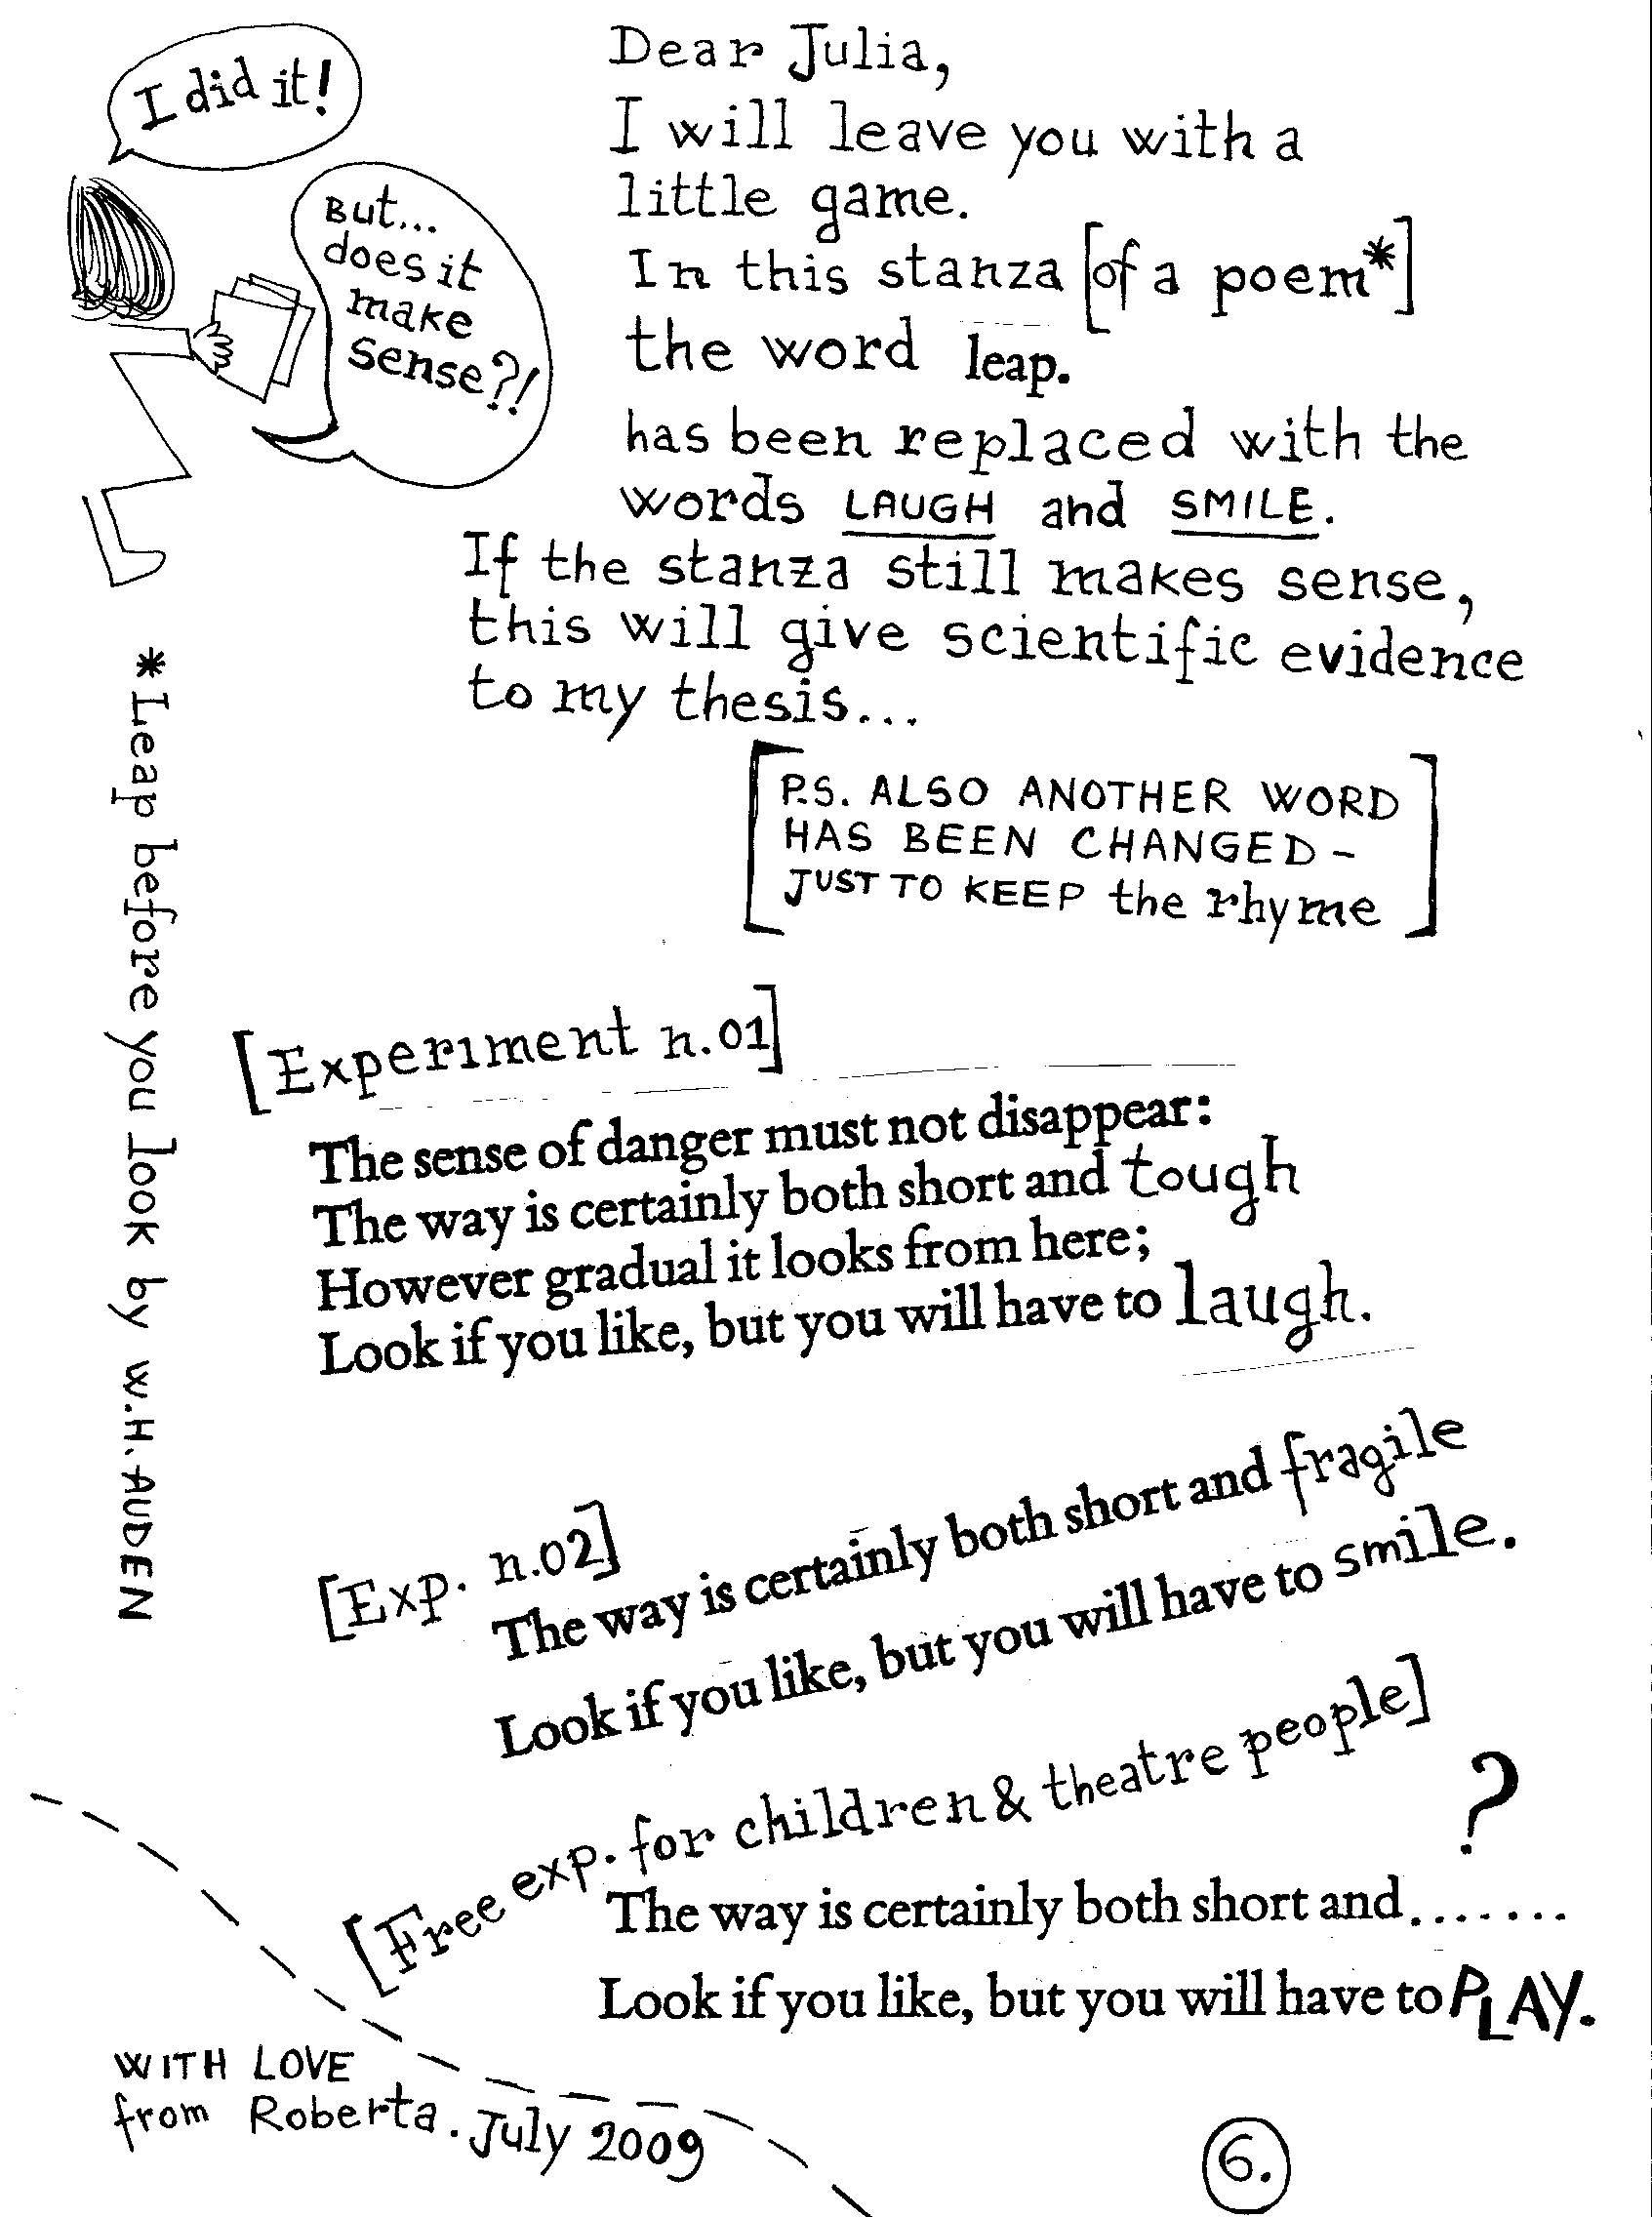 I did it!
But...
does it
make
sense?!
Dear Julia,
I will leave you with a
little game.
In this stanza [of a poem*]
the word leap.
has been replaced with the
words LAUGH and SMILE.
If the stanza still makes sense,
this will give scientific evidence
to my thesis...
[P.S. ALSO ANOTHER WORD
HAS BEEN CHANGED-
JUST TO KEEP the rhyme]
*Leap before you look by W.H. AUDEN
[Experiment n.01]
The sense of danger must not disappear:
The way is certainly both short and tough
However gradual it looks from here;
Look if you like, but you will have to laugh.
[Exp. n.02]
The way is certainly both short and fragile
Look if you like, but you will have to smile.
[Free exp. for children & theatre people]
?
The way is certainly both short and.......
Look if you like, but you will have to PLAY.
WITH LOVE
from Roberta. July 2009
6.